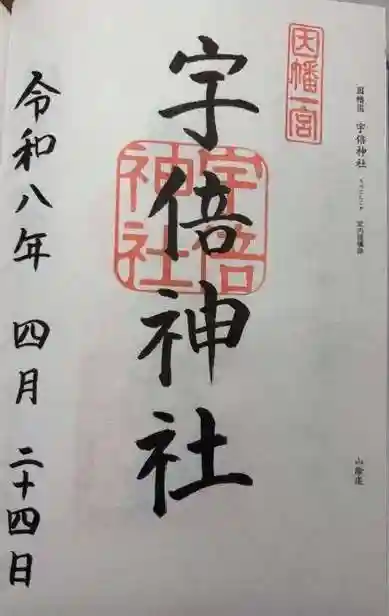 因幡国 宇倍神社
山陰道
因幡一宮
宇倍神社
宇倍神社
令和八年 四月 二十四日